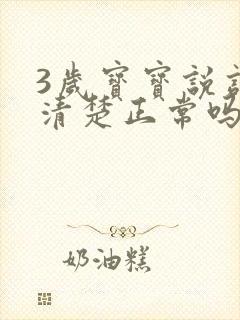 3歲寶寶說話
清楚正常嗎
奶油糕